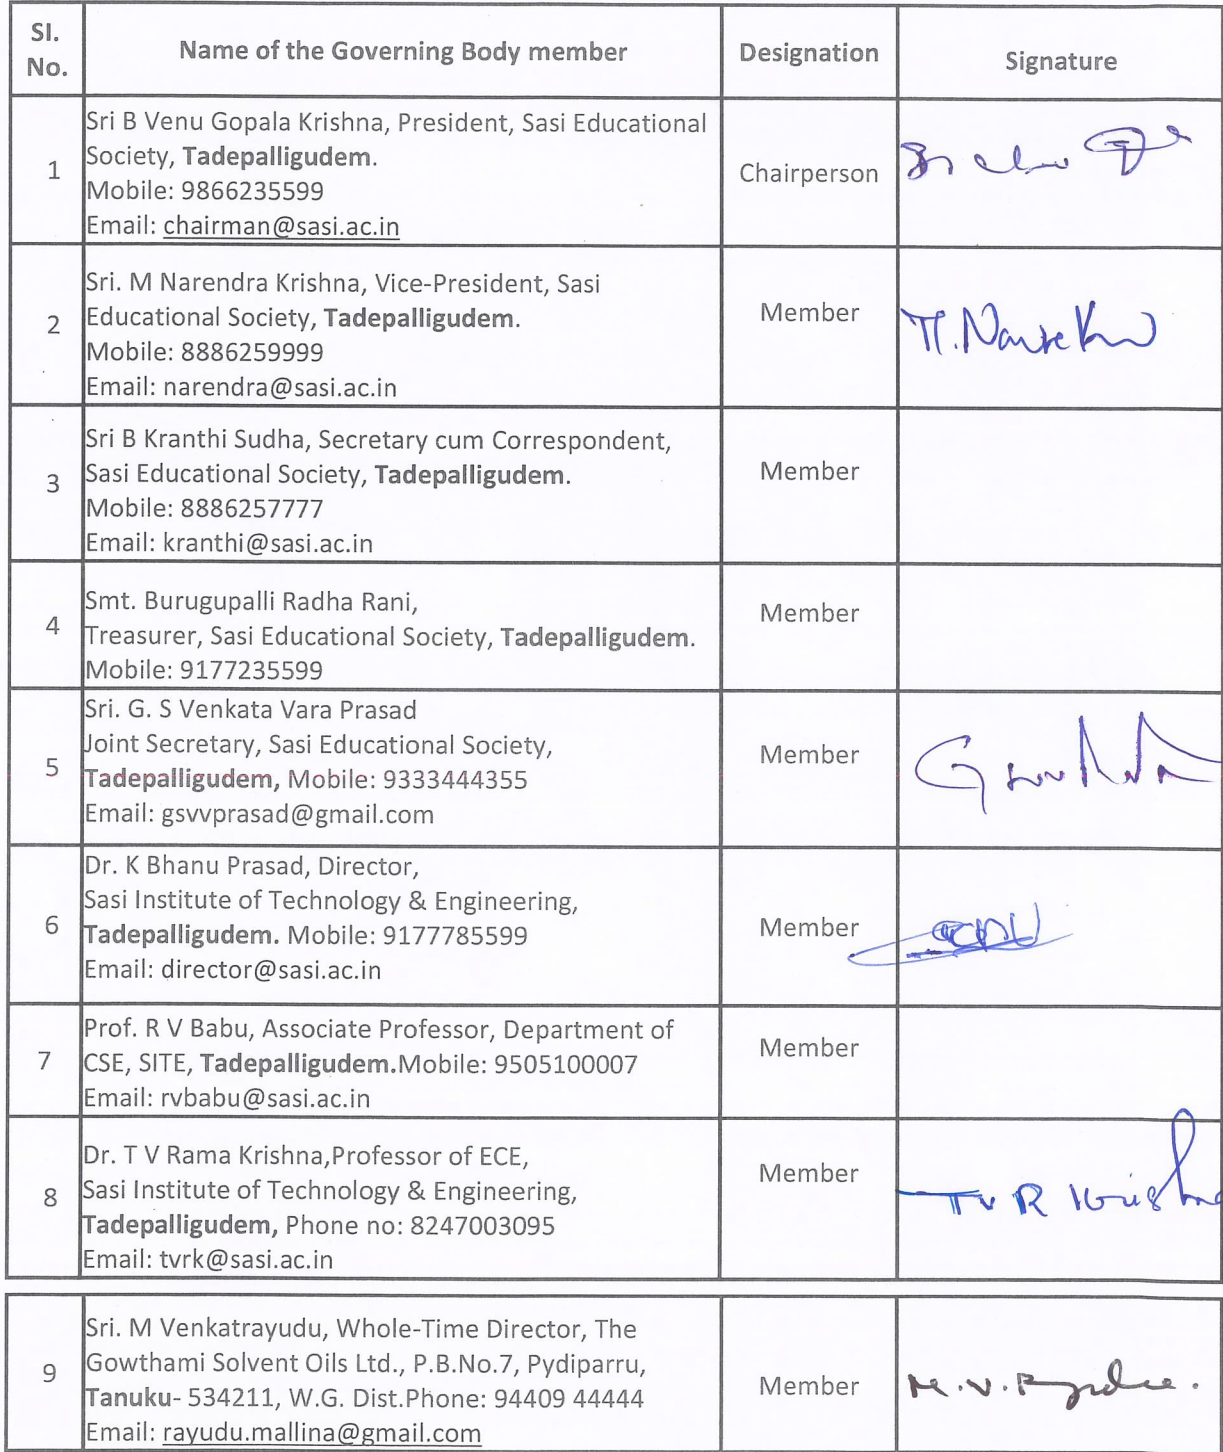 Sl. No. Name of the Governing Body member Designation Signature
1
Sri B Venu Gopala Krishna, President, Sasi Educational
Society, Tadepalligudem.
Mobile: 9866235599
Email: chairman@sasi.ac.in
Chairperson
2
Sri. M Narendra Krishna, Vice-President, Sasi
Educational Society, Tadepalligudem.
Mobile: 8886259999
Email: narendra@sasi.ac.in
Member
3
Sri B Kranthi Sudha, Secretary cum Correspondent,
Sasi Educational Society, Tadepalligudem.
Mobile: 8886257777
Email: kranthi@sasi.ac.in
Member
4
Smt. Burugupalli Radha Rani,
Treasurer, Sasi Educational Society, Tadepalligudem.
Mobile: 9177235599
Member
5
Sri. G. S Venkata Vara Prasad
Joint Secretary, Sasi Educational Society,
Tadepalligudem, Mobile: 9333444355
Email: gsvvprasad@gmail.com
Member
6
Dr. K Bhanu Prasad, Director,
Sasi Institute of Technology & Engineering,
Tadepalligudem. Mobile: 9177785599
Email: director@sasi.ac.in
Member
7
Prof. R V Babu, Associate Professor, Department of
CSE, SITE, Tadepalligudem.Mobile: 9505100007
Email: rvbabu@sasi.ac.in
Member
8
Dr. T V Rama Krishna,Professor of ECE,
Sasi Institute of Technology & Engineering,
Tadepalligudem, Phone no: 8247003095
Email: tvrk@sasi.ac.in
Member
TV R Krishna
9
Sri. M Venkatrayudu, Whole-Time Director, The
Gowthami Solvent Oils Ltd., P.B.No.7, Pydiparru,
Tanuku- 534211, W.G. Dist.Phone: 94409 44444
Email: rayudu.mallina@gmail.com
Member